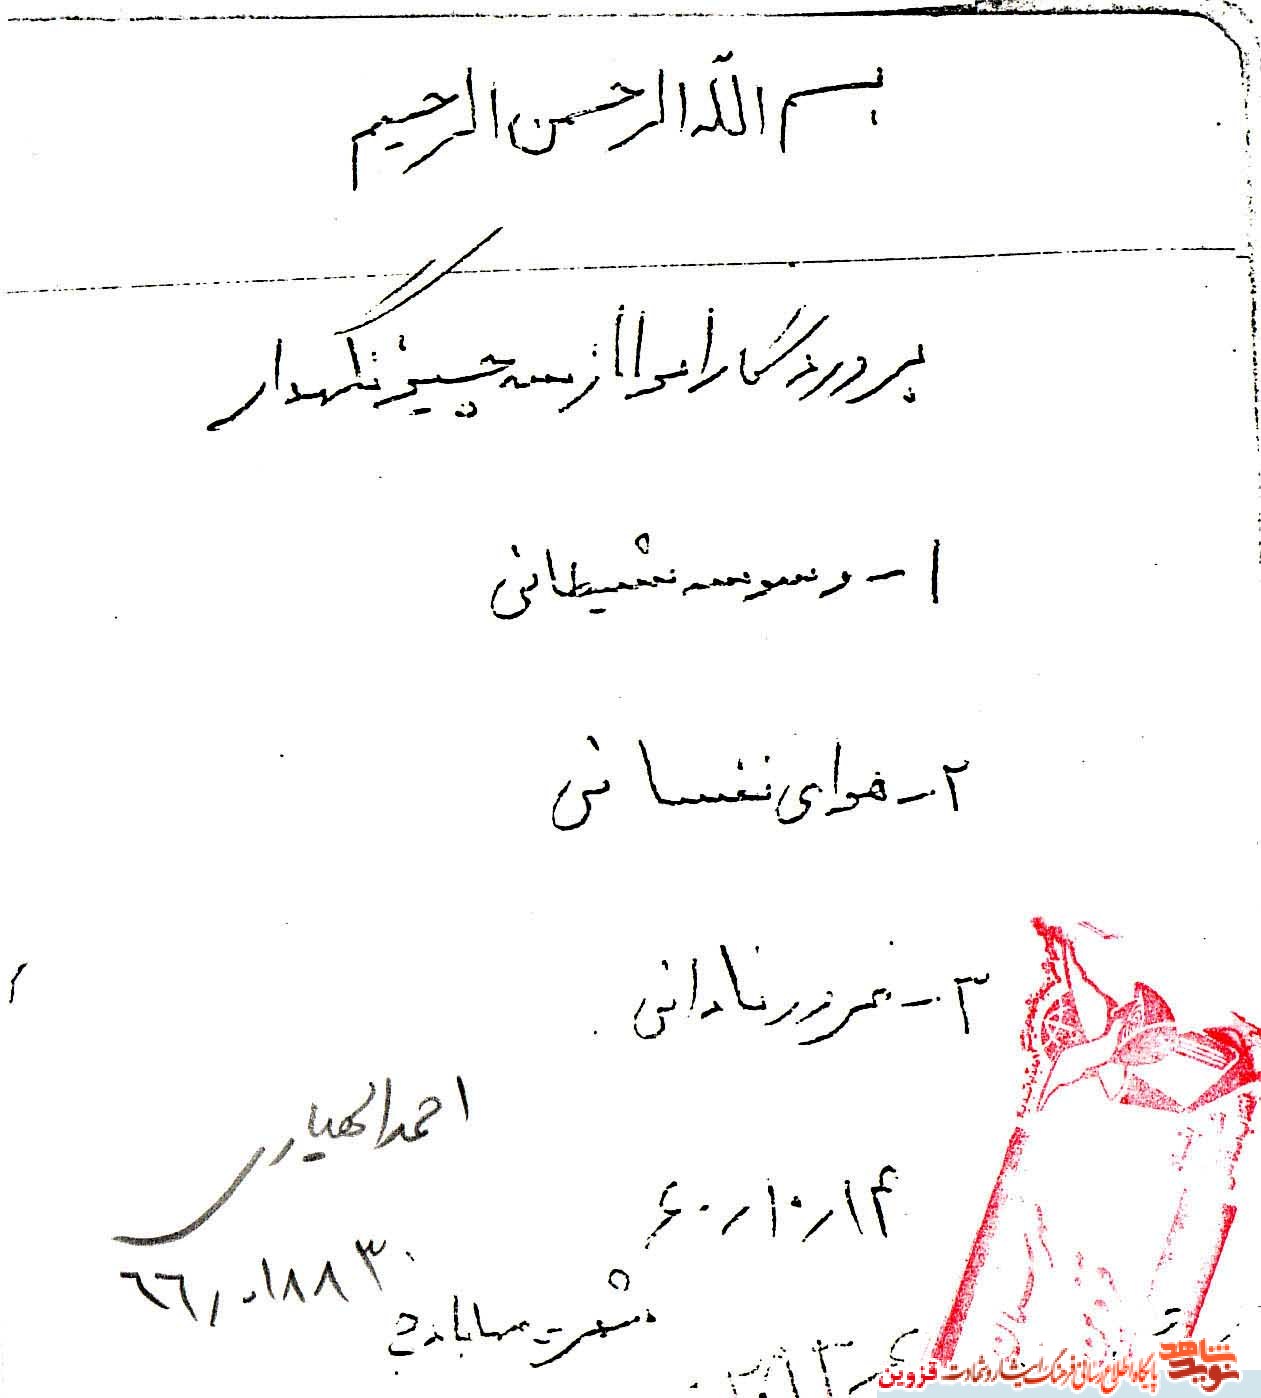 بسم اللّه الرحمن الرحیم
پروردگارا مرا از سه چیز نگهدار
۱- وسوسه شیطانی
۲- هوای نفسانی
۳- غرور نادانی
احمد الهیاری
۶۰/۱۰/۱۴
شاهد
نوید
پایگاه اطلاع رسانی فرهنگ ایثار و شهادت قزوین